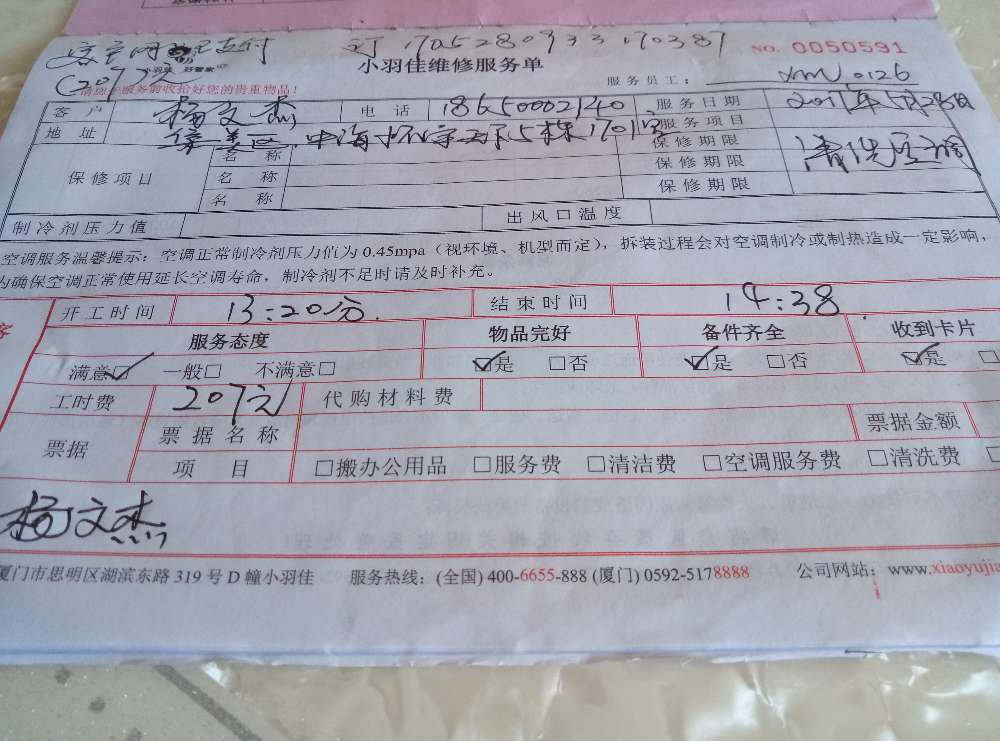 支付 订 1705280933170387
(207元) 小羽佳维修服务单 NO. 0050591
服务前收拾好您的贵重物品! 服务员工: xm0126
客户 杨文杰 电话 18650002140 服务日期 2017年5月28日
地址 集美区 中海 5栋1701 服务项目 清洗空调
保修项目 名称 保修期限
名称 保修期限
名称 保修期限
制冷剂压力值 出风口温度
空调服务温馨提示: 空调正常制冷剂压力值为 0.45mpa (视环境、机型而定), 拆装过程会对空调制冷或制热造成一定影响,
为确保空调正常使用延长空调寿命, 制冷剂不足时请及时补充。
开工时间 13:20分. 结束时间 14:38
服务态度 物品完好 备件齐全 收到卡片
满意☑ 一般□ 不满意□ ☑是 □否 ☑是 □否 ☑是
工时费 207元 代购材料费
票据 票据名称 票据金额
项目 □搬办公用品 □服务费 □清洁费 □空调服务费 □清洗费
杨文杰
厦门市思明区湖滨东路 319 号 D 幢小羽佳 服务热线: (全国) 400-6655-888 (厦门) 0592-5178888 公司网站: www.xiaoyujia